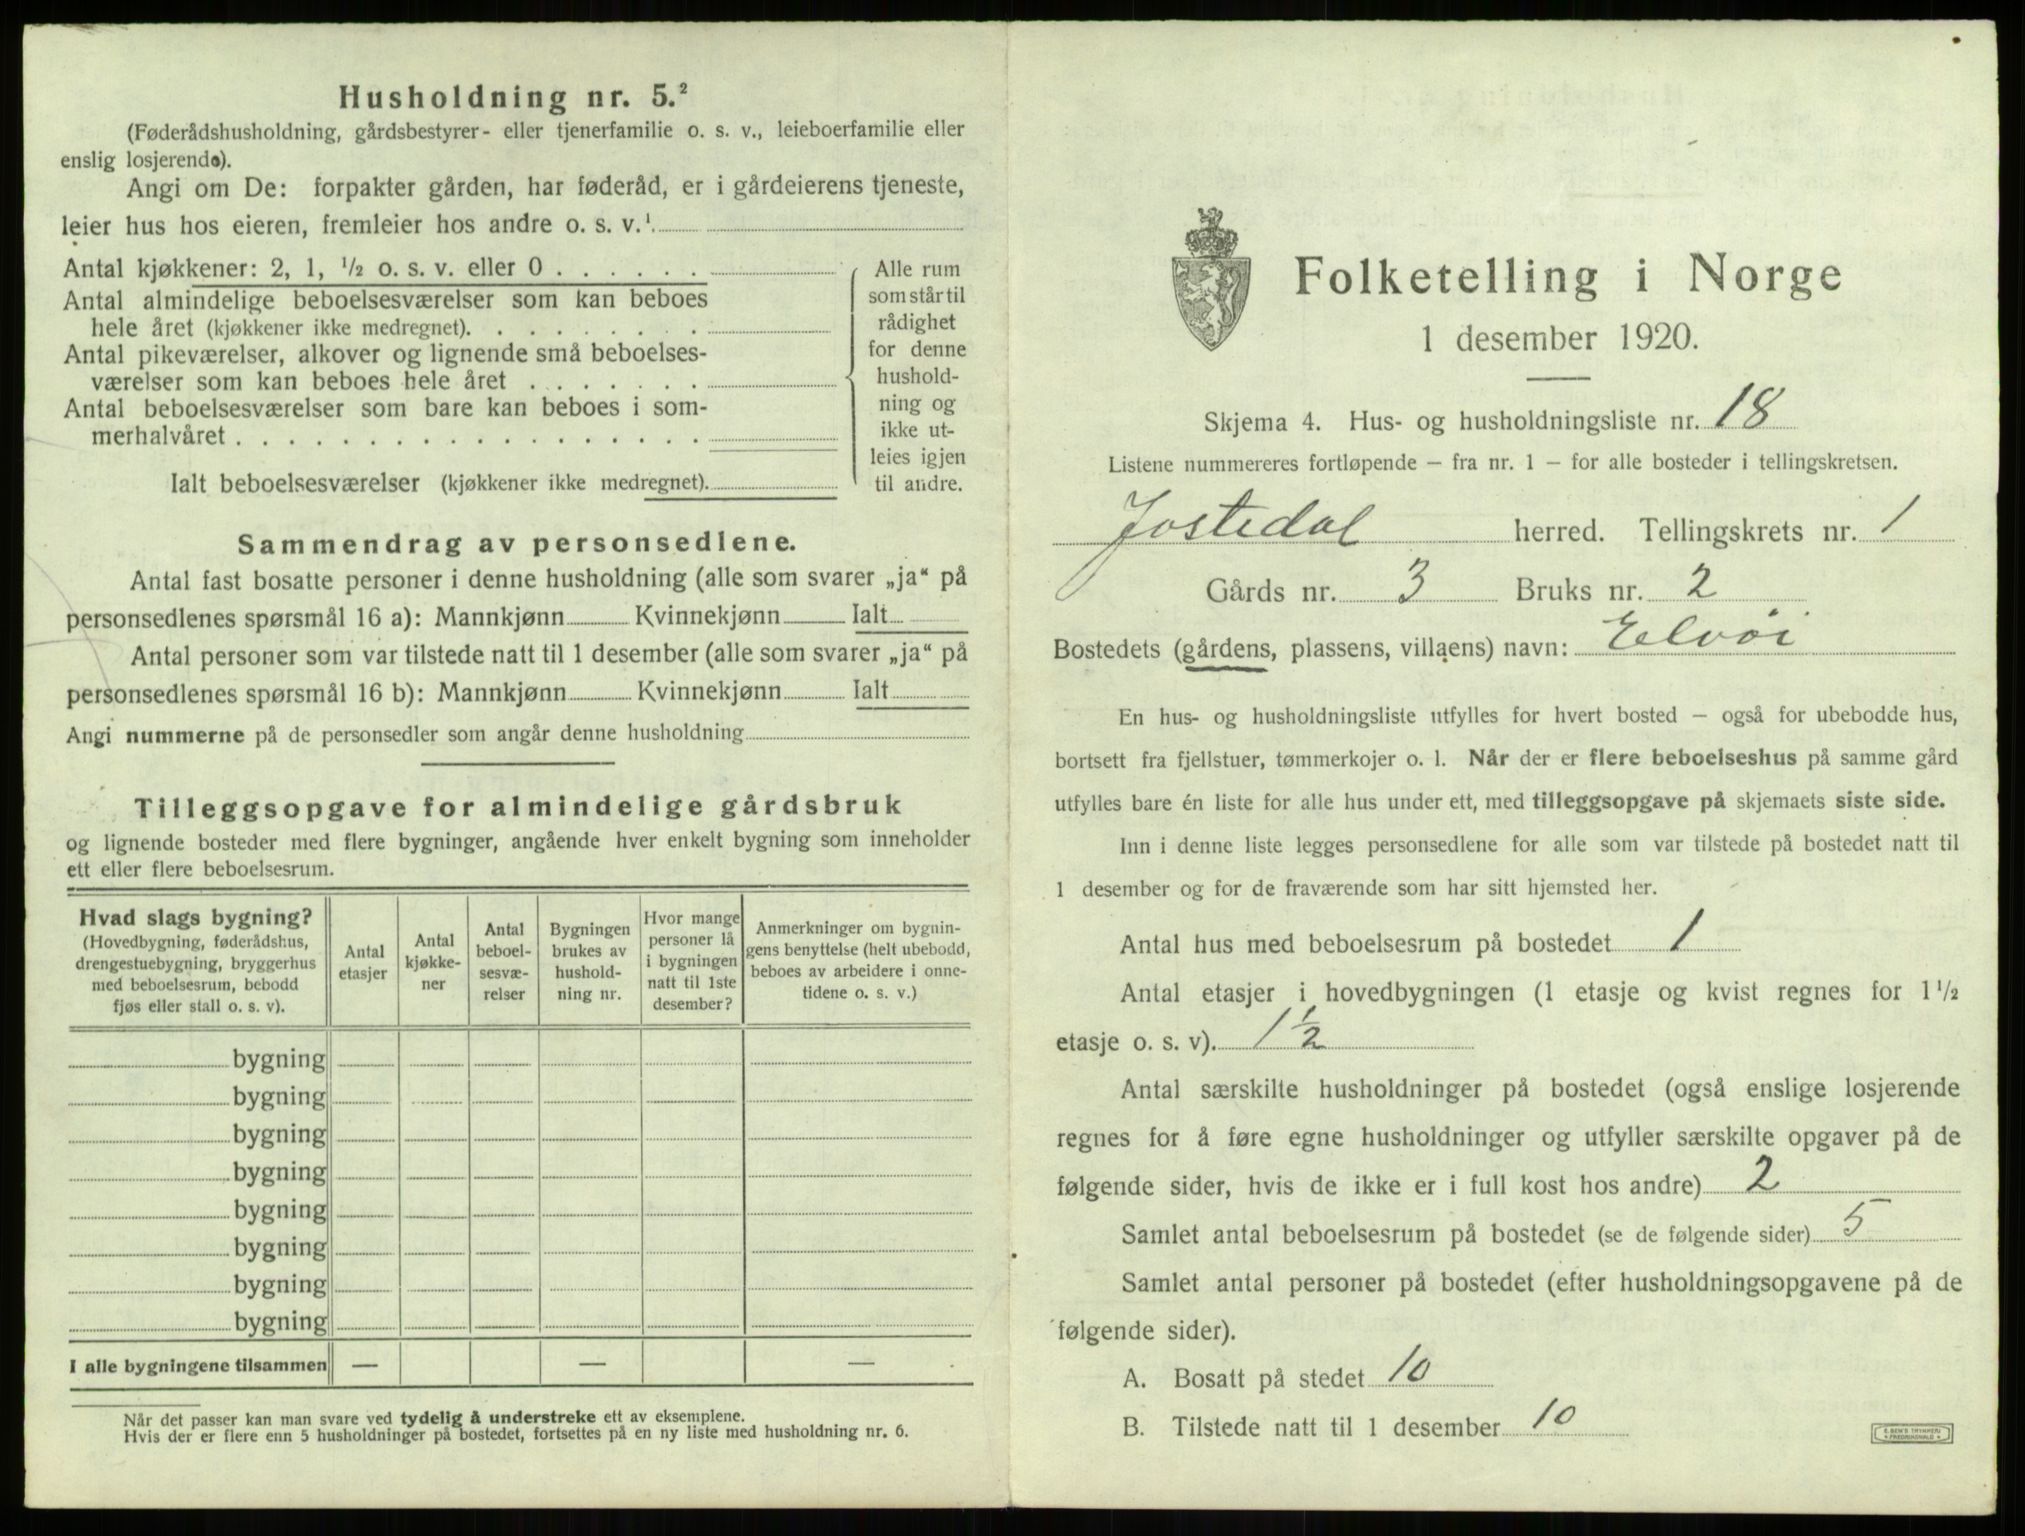 Husholdning nr. 5.²
(Føderådshusholdning, gårdsbestyrer- eller tjenerfamilie o. s. v., leieboerfamilie eller
enslig losjerende).
Angi om De: forpakter gården, har føderåd, er i gårdeierens tjeneste,
leier hus hos eieren, fremleier hos andre o. s. v.¹
Antal kjøkkener: 2, 1, ½ o. s. v. eller 0 . . . . . .
Antal almindelige beboelsesværelser som kan beboes
hele året (kjøkkener ikke medregnet). . . . . . . . .
Antal pikeværelser, alkover og lignende små beboelses-
værelser som kan beboes hele året . . . . . . .
Antal beboelsesværelser som bare kan beboes i som-
merhalvåret . . . . . . . . . . . . . . . . . .
Ialt beboelsesværelser (kjøkkener ikke medregnet).
Alle rum
som står til
rådighet
for denne
hushold-
ning og
ikke ut-
leies igjen
til andre.
Sammendrag av personsedlene.
Antal fast bosatte personer i denne husholdning (alle som svarer „ja“ på
personsedlenes spørsmål 16 a): Mannkjønn Kvinnekjønn Ialt
Antal personer som var tilstede natt til 1 desember (alle som svarer „ja“ på
personsedlenes spørsmål 16 b): Mannkjønn Kvinnekjønn Ialt
Angi nummerne på de personsedler som angår denne husholdning
Tilleggsopgave for almindelige gårdsbruk
og lignende bosteder med flere bygninger, angående hver enkelt bygning som inneholder
ett eller flere beboelsesrum.
Hvad slags bygning?
(Hovedbygning, føderådshus,
drengestuebygning, bryggerhus
med beboelsesrum, bebodd
fjøs eller stall o. s. v).
Antal
etasjer
Antal
kjøkke-
ner
Antal
beboel-
sesvæ-
relser
Bygningen
brukes av
hushold-
ning nr.
Hvor mange
personer lå
i bygningen
natt til 1ste
desember?
Anmerkninger om bygnin-
gens benyttelse (helt ubebodd,
beboes av arbeidere i onne-
tidene o. s. v.)
bygning
bygning
bygning
bygning
bygning
bygning
bygning
bygning
I alle bygningene tilsammen — — —
Når det passer kan man svare ved tydelig å understreke ett av eksemplene.
Hvis der er flere enn 5 husholdninger på bostedet, fortsettes på en ny liste med husholdning nr. 6.
Folketelling i Norge
1 desember 1920.
Skjema 4. Hus- og husholdningsliste nr. 18
Listene nummereres fortløpende – fra nr. 1 – for alle bosteder i tellingskretsen.
Jostedal herred. Tellingskrets nr. 1
Gårds nr. 3 Bruks nr. 2
Bostedets (gårdens, plassens, villaens) navn: Elvøi
En hus- og husholdningsliste utfylles for hvert bosted – også for ubebodde hus,
bortsett fra fjellstuer, tømmerkojer o. l. Når der er flere beboelseshus på samme gård
utfylles bare én liste for alle hus under ett, med tilleggsopgave på skjemaets siste side.
Inn i denne liste legges personsedlene for alle som var tilstede på bostedet natt til
1 desember og for de fraværende som har sitt hjemsted her.
Antal hus med beboelsesrum på bostedet 1
Antal etasjer i hovedbygningen (1 etasje og kvist regnes for 1½
etasje o. s. v). 1½
Antal særskilte husholdninger på bostedet (også enslige losjerende
regnes for å føre egne husholdninger og utfyller særskilte opgaver på de
følgende sider, hvis de ikke er i full kost hos andre) 2
Samlet antal beboelsesrum på bostedet (se de følgende sider) 5
Samlet antal personer på bostedet (efter husholdningsopgavene på de
følgende sider).
A. Bosatt på stedet 10
B. Tilstede natt til 1 desember 10